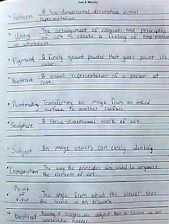 Pattern A two-dimensional decorative visual
Unity The arrangement of elements and principles
of art to create a feeling of completeness
or wholeness.
Pigment A finely ground powder that gives paint its
color.
Portrait A visual representation of a person at
rest.
Printmaking Transferring an image from an inked
surface to another surface.
Sculpture A three-dimensional work of art
Subject An image viewers can easily identify
Composition The way the principles are used to organize
the elements of art.
Point The angle from which the viewer sees
of
the scene in an artwork
Abstract